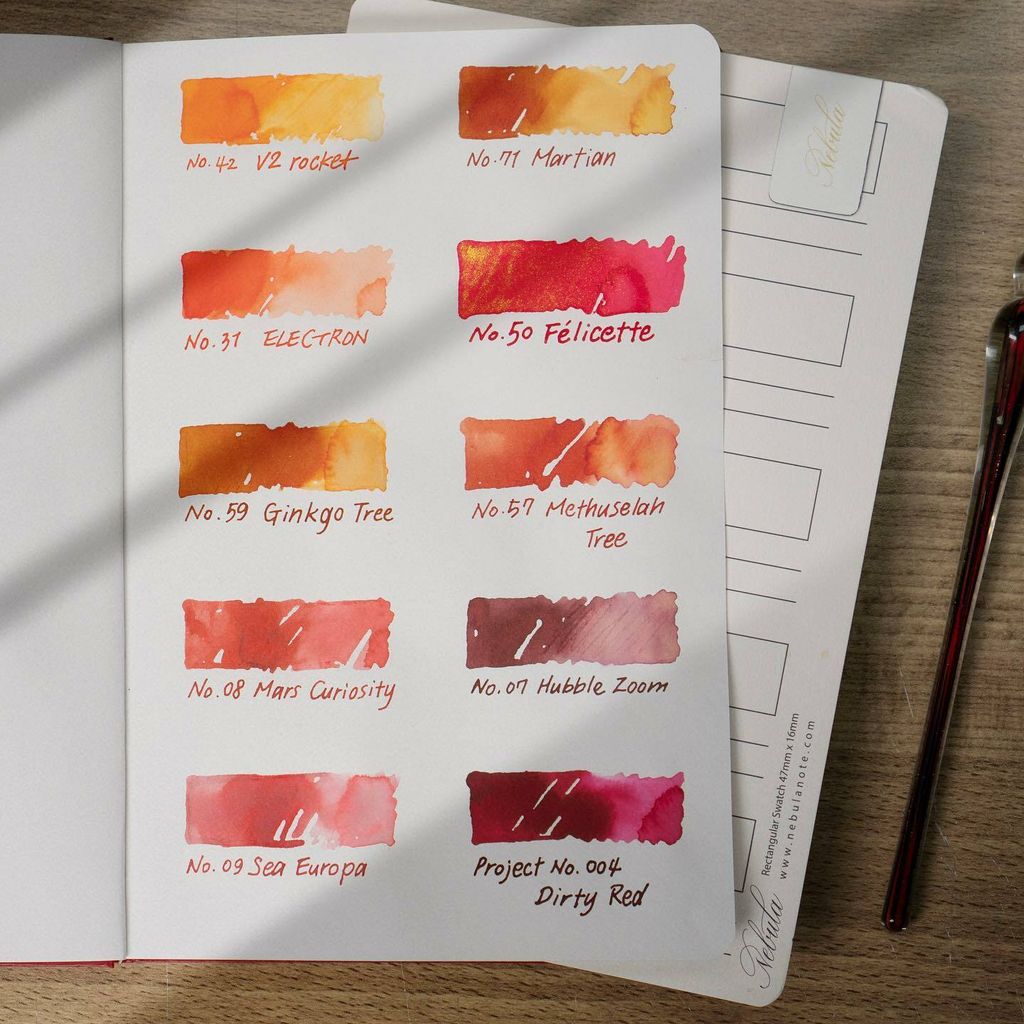 No. 42 V2 rocket
No. 71 Martian
No. 31 ELECTRON
No. 50 Félicette
No. 59 Ginkgo Tree
No. 57 Methuselah
Tree
No. 08 Mars Curiosity
No. 07 Hubble Zoom
No. 09 Sea Europa
Project No. 004
Dirty Red
Nebula
Rectangular Swatch 47mm x 16mm
www.nebulanote.com
Nebula